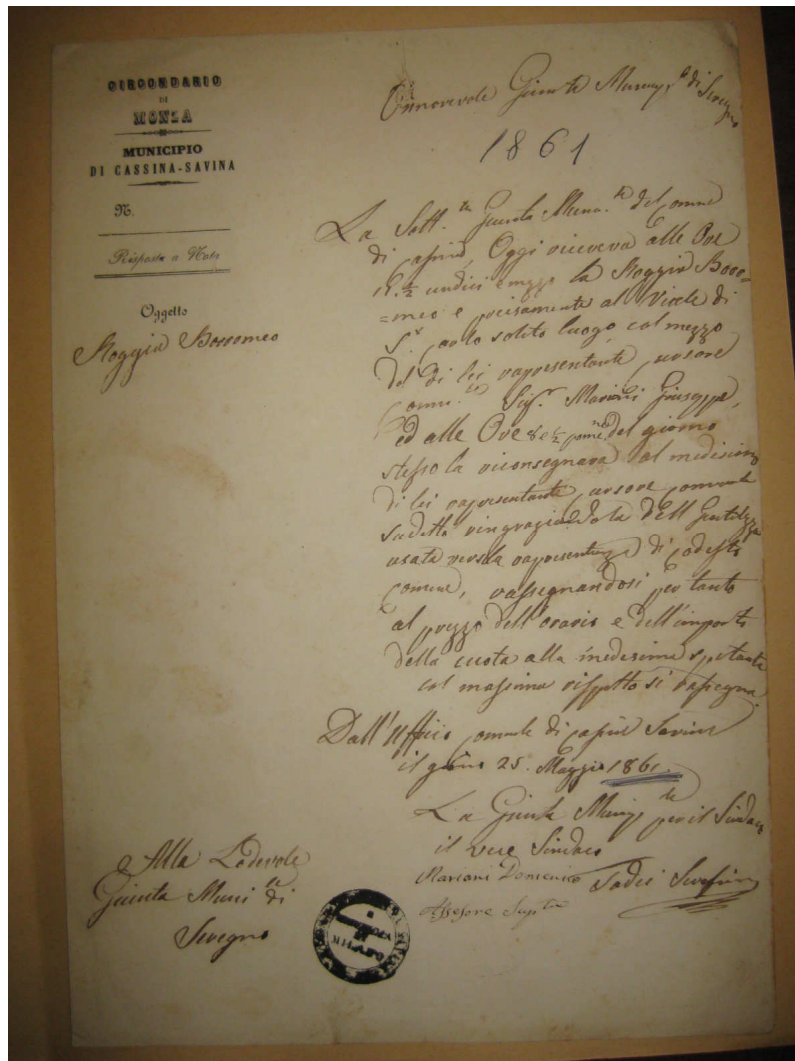 CIRCONDARIO
DI
MONZA
MUNICIPIO
DI CASSINA-SAVINA
N.
Risposta a Nota
Oggetto
Roggia Borromeo
Onnorevole Giunta Municip.le di Seregno
1861
La Sott.ta Giunta Mun.le del Comune
di Cassina, Oggi riceveva alle Ore
11.½ undici e mezzo la Roggia Boro=
=meo e precisamente al Viale di
S. Carlo solito luogo, col mezzo
del di lei rappresentante cursore
Comu.le Sig.r Mariani Giuseppe,
ed alle Ore 8 e ½ pome.ne del giorno
stesso la riconsegnava al medesimo
di lei rapresentante cursore comunale
sudetto ringraziandola dell Gentilezza
usata verso la rapresentanza di codesto
Comune, rassegnandosi per tanto
al prezzo dell'orario e dell'importo
della cuota alla medesima spetante
col massimo rispetto si rassegna.
Dall'Ufficio Comunale di Cassina Savina
il giorno 25. Maggio 1861.
La Giunta Municip.le per il Sindaco
il vece Sindaco
Mariani Domenico
Assesore Supl.te
Alla Lodevole
Giunta Muni.le di
Seregno